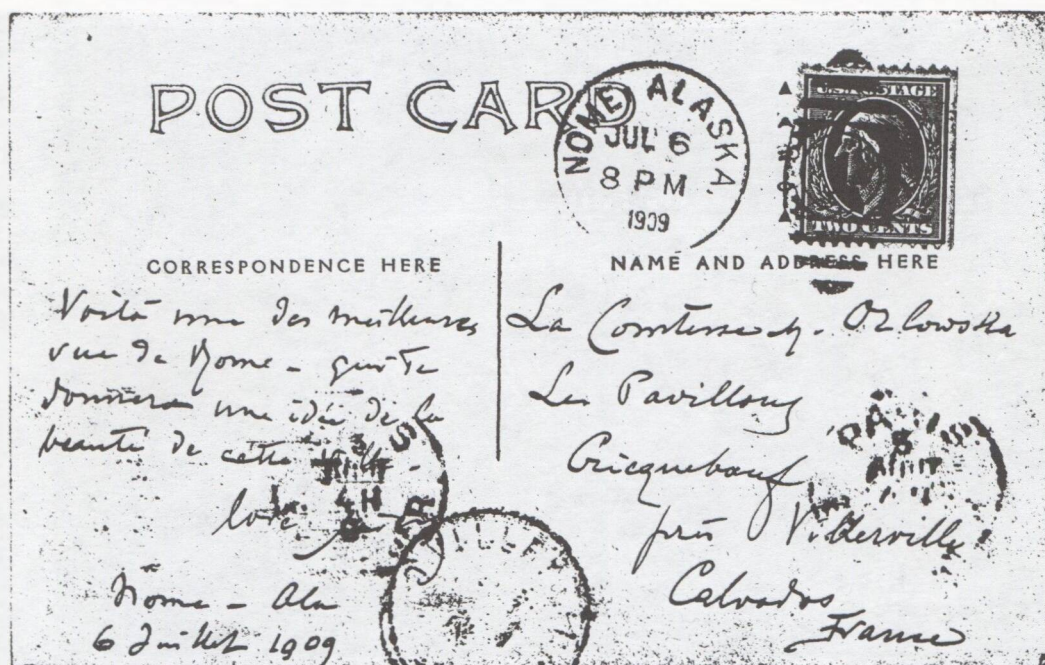 POST CARD
NOME ALASKA
JUL 6
8 PM
1909
U.S. POSTAGE
TWO CENTS
CORRESPONDENCE HERE
NAME AND ADDRESS HERE
Voilà une des meilleures
vue de Nome - qui te
donnera une idée de la
beauté de cette ville -
love
Nome - Ala
6 Juillet 1909
La Comtesse M. Orlowska
Les Pavillons
Cricquebœuf
près Villerville
Calvados
France
PARIS
AOUT
VILLERVILLE